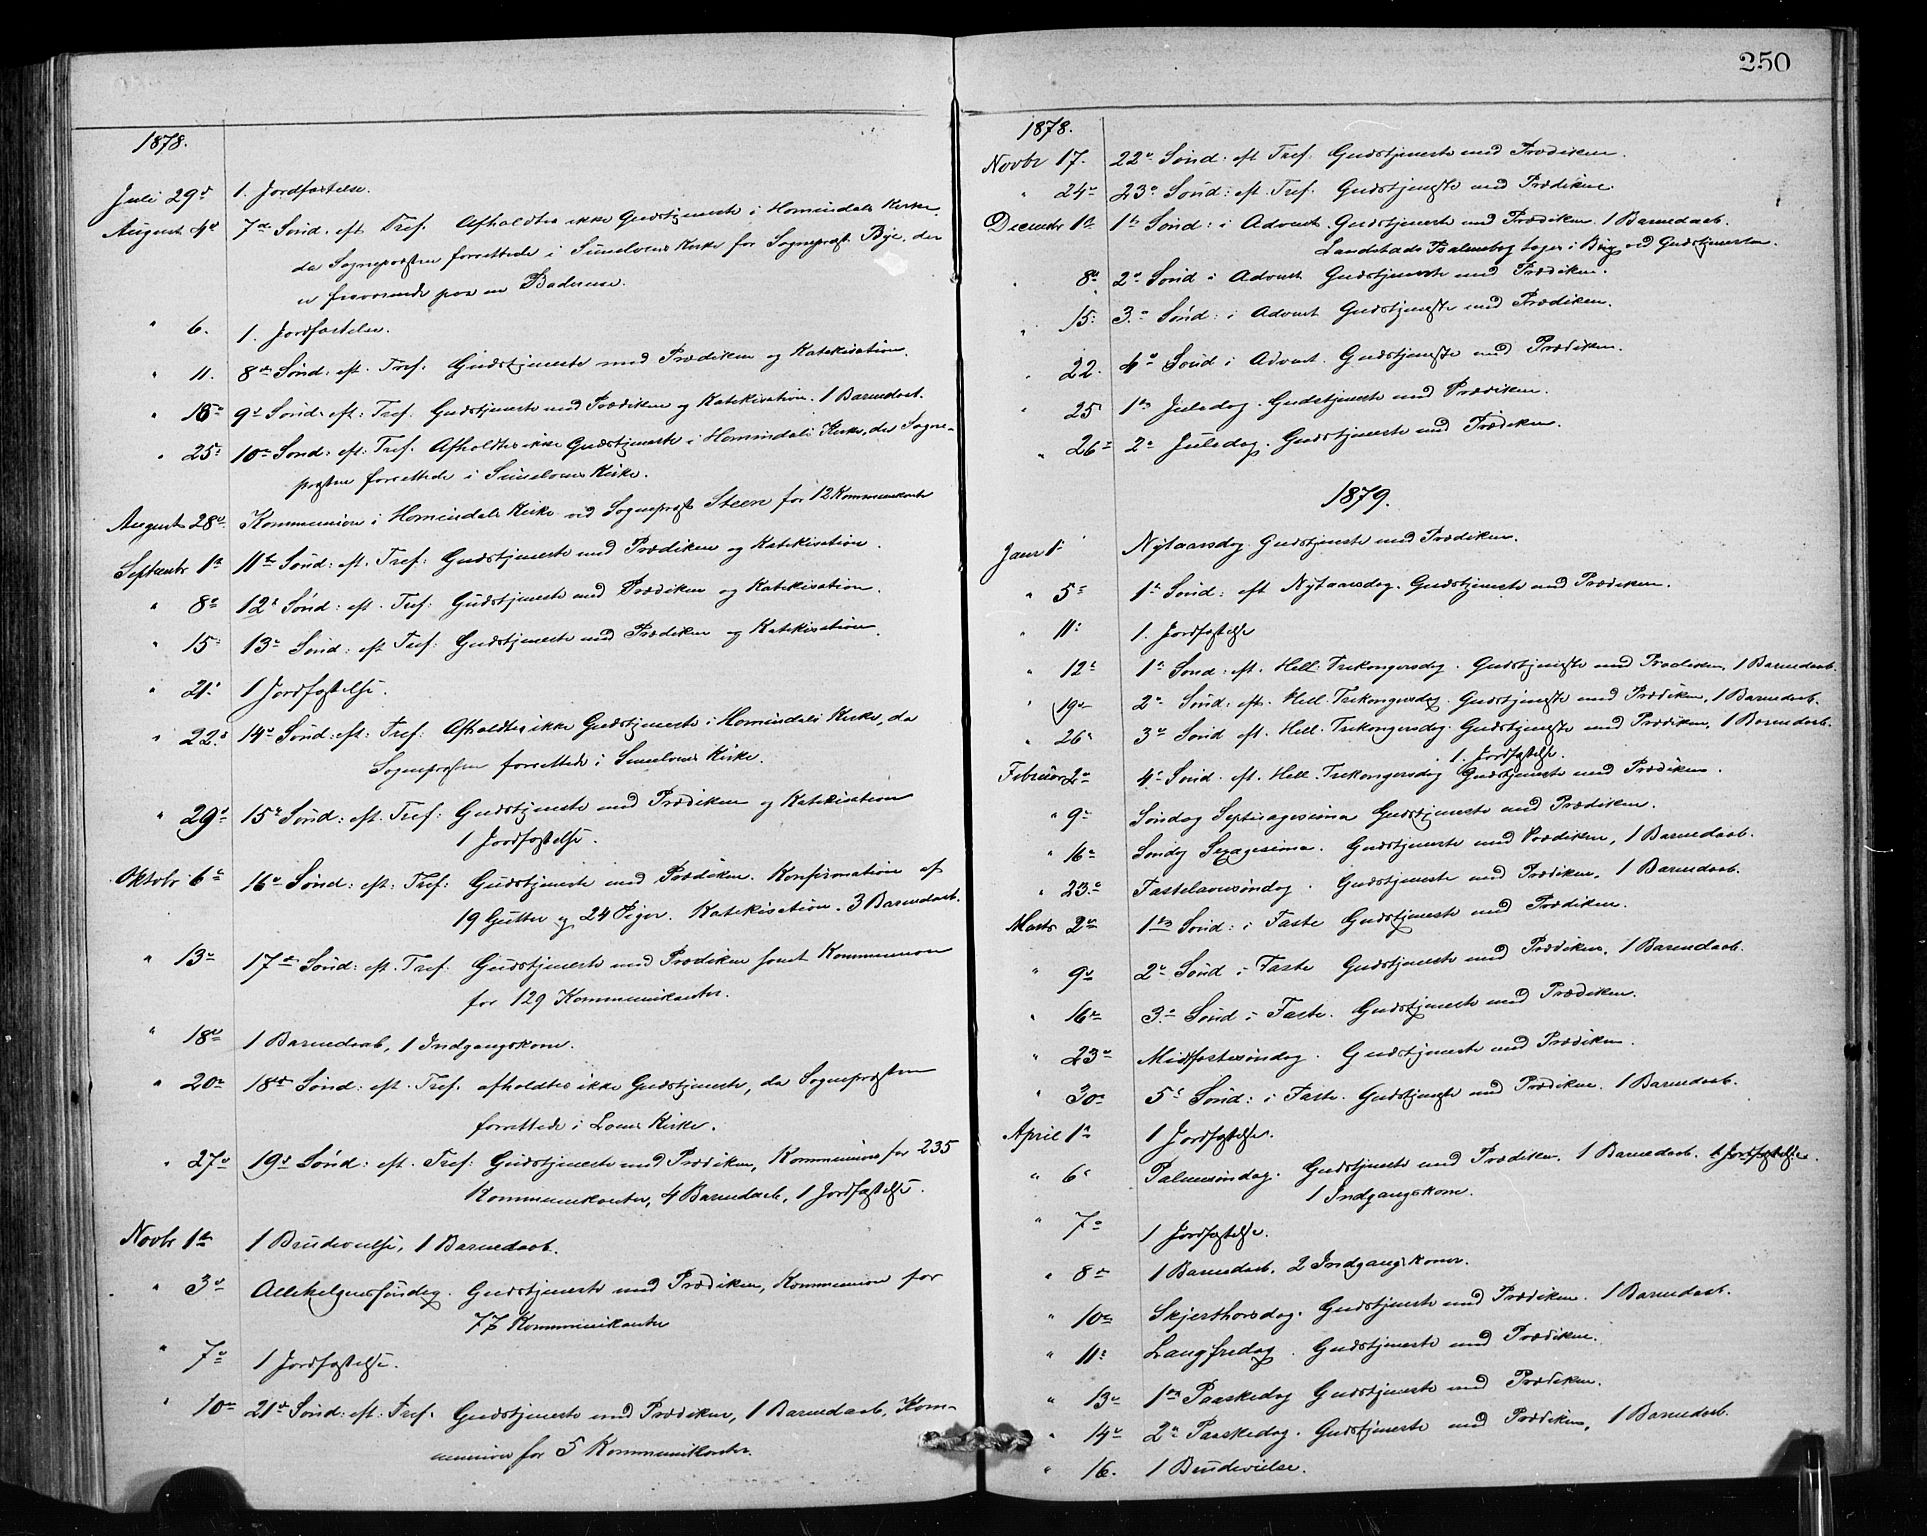 1878.
Juli 29d 1. Jordfæstelse.
August 4d 7de Sønd. eft. Tref. Afholdtes ikke Gudstjeneste i Hornindals Kirke,
da Sognepræsten forrettede i Sunelvens Kirke for Sognepræst Bye, der
er fraværende paa en Badereise.
" 6. 1. Jordfæstelse.
" 11. 8de Sønd: eft. Tref. Gudstjeneste med Prædiken og Katekisation.
" 18de 9d Sønd: eft: Tref. Gudstjeneste med Prædiken og Katekisation. 1 Barnedaab.
" 25de 10de Sønd: eft: Tref. Afholdtes ikke Gudstjeneste i Hornindals Kirke, da Sogne-
præsten forrettede i Sunelvens Kirke.
August 28de Kommunion i Hornindals Kirke ved Sognepræst Steen for 12 Kommunikanter
Septembr 1te 11te Sønd: eft. Tref: Gudstjeneste med Prædiken og Katekisation.
" 8de 12te Sønd: eft. Tref: Gudstjeneste med Prædiken og Katekisation.
" 15: 13de Sønd: eft Tref: Gudstjeneste med Prædiken og Katekisation.
" 21: 1 Jordfæstelse.
" 22: 14de Sønd: eft: Tref: Afholdtes ikke Gudstjeneste i Hornindals Kirke, da
Sognepræsten forrettede i Sunelvens Kirke.
" 29d 15de Sønd: eft. Tref: Gudstjeneste med Prædiken og Katekisation
1 Jordfæstelse.
Oktobr 6te 16de Sønd: eft: Tref: Gudstjeneste med Prædiken. Konfirmation af
19 Gutter og 24 Piger. Katekisation. 3 Barnedaab.
" 13de 17de Sønd: eft. Tref. Gudstjeneste med Prædiken samt Kommunion
for 129 Kommunikanter.
" 18de 1 Barnedaab, 1 Indgangskone.
" 20de 18de Sønd: eft. Tref. afholdtes ikke Gudstjeneste, da Sognepræsten
forrettede i Loens Kirke.
" 27de 19d Sønd: eft. Tref: Gudstjeneste med Prædiken, Kommunion for 235
Kommunikanter, 4 Barnedaab, 1 Jordfæstelse.
Novbr 1te 1 Brudevielse, 1 Barnedaab.
" 3de Allehelgenssøndag. Gudstjeneste med Prædiken, Kommunion for
77 Kommunikanter
" 7de 1 Jordfæstelse.
" 10de 21de Sønd: eft: Tref. Gudstjeneste med Prædiken, 1 Barnedaab, Kom-
munion for 5 Kommunikanter.
250
1878.
Novbr 17. 22de Sønd: eft Tref. Gudstjeneste med Prædiken.
" 24de 23de Sønd: eft. Tref: Gudstjeneste med Prædiken.
Decembr 1te 1te Sønd: i Advent. Gudstjeneste med Prædiken. 1 Barnedaab.
Landstads Psalmebog toges i Brug ved Gudstjenesten.
" 8de 2de Sønd i Advent Gudstjeneste med Prædiken.
" 15: 3de Sønd: i Advent Gudstjeneste med Prædiken.
" 22. 4de Sønd i Advent. Gudstjeneste med Prædiken.
" 25 1ste Juledag. Gudstjeneste med Prædiken.
" 26de 2de Juledag. Gudstjeneste med Prædiken.
1879.
Janr 1. Nytaarsdag. Gudstjeneste med Prædiken.
" 5te 1te Sønd: eft Nytaarsdag. Gudstjeneste med Prædiken.
" 11: 1. Jordfæstelse
" 12te 1te Sønd: eft. Hell. Trekongersdag. Gudstjeneste med Prædiken, 1 Barnedaab.
" 19de 2de Sønd: eft. Hell. Trekongersdag. Gudstjeneste med Prædiken, 1 Barnedaab.
" 26de 3de Sønd eft. Hell. Trekongersdag. Gudstjeneste med Prædiken, 1 Barnedaab.
1. Jordfæstelse.
Februar 2de 4de Sønd. eft. Hell. Trekongersdag Gudstjeneste med Prædiken.
" 9de Søndag Septuagesima Gudstjeneste med Prædiken.
" 16de Søndag Sexagesima. Gudstjeneste med Prædiken, 1 Barnedaab.
" 23de Fastelavnssøndag. Gudstjeneste med Prædiken, 1 Barnedaab.
Marts 2de 1ste Sønd: i Faste Gudstjeneste med Prædiken.
" 9de 2de Sønd i Faste Gudstjeneste med Prædiken, 1 Barnedaab.
" 16de 3de Sønd i Faste. Gudstjeneste med Prædiken.
" 23de Midfastesøndag. Gudstjeneste med Prædiken.
" 30de 5te Sønd: i Faste. Gudstjeneste med Prædiken. 1 Barnedaab.
April 1te 1 Jordfæstelse.
" 6te Palmesøndag. Gudstjeneste med Prædiken. 1 Barnedaab. 1 Jordfæstelse.
1 Indgangskone.
" 7de 1 Jordfæstelse.
" 8de 1 Barnedaab, 2 Indgangskoner.
" 10de Skjærthorsdag. Gudstjeneste med Prædiken. 1 Barnedaab.
" 11: Langfredag. Gudstjeneste med Prædiken.
" 13de 1ste Paaskedag Gudstjeneste med Prædiken.
" 14de 2de Paaskedag. Gudstjeneste med Prædiken, 1 Barnedaab.
" 16. 1 Brudevielse.